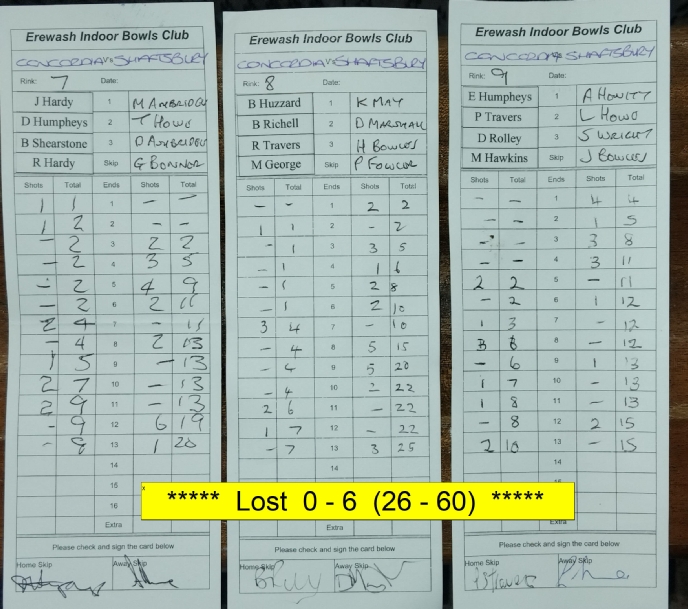 Erewash Indoor Bowls Club
CONCORDIA vs SHAFTSBURY
Rink: 7 Date:
J Hardy 1
D Humpheys 2 T HOWD
B Shearstone 3
R Hardy Skip G BONNOR
Shots Total Ends Shots Total
1 1 1 – –
1 2 2 – –
– 2 3 2 2
– 2 4 3 5
– 2 5 4 9
– 2 6 2 11
2 4 7 – 11
– 4 8 2 13
1 5 9 – 13
2 7 10 – 13
2 9 11 – 13
– 9 12 6 19
– 9 13 1 20
14
15
16
Extra
Please check and sign the card below
Home Skip Away Skip
Erewash Indoor Bowls Club
CONCORDIA vs SHAFTSBURY
Rink: 8 Date:
B Huzzard 1 K MAY
B Richell 2 D MARSHALL
R Travers 3 H BOWLES
M George Skip
Shots Total Ends Shots Total
– – 1 2 2
1 1 2 – 2
– 1 3 3 5
– 1 4 1 6
– 1 5 2 8
– 1 6 2 10
3 4 7 – 10
– 4 8 5 15
– 4 9 5 20
– 4 10 2 22
2 6 11 – 22
1 7 12 – 22
– 7 13 3 25
14
Extra
Please check and sign the card below
Home Skip Away Skip
Erewash Indoor Bowls Club
CONCORDIA SHAFTSBURY
Rink: 9 Date:
E Humpheys 1 A HOWITT
P Travers 2 L HOWD
D Rolley 3 S WRIGHT
M Hawkins Skip J BOWLES
Shots Total Ends Shots Total
– – 1 4 4
– – 2 1 5
– – 3 3 8
– – 4 3 11
2 2 5 – 11
– 2 6 1 12
1 3 7 – 12
3 6 8 – 12
– 6 9 1 13
1 7 10 – 13
1 8 11 – 13
– 8 12 2 15
2 10 13 – 15
14
Extra
Please check and sign the card below
Home Skip Away Skip
x
***** Lost 0 - 6 (26 - 60) *****